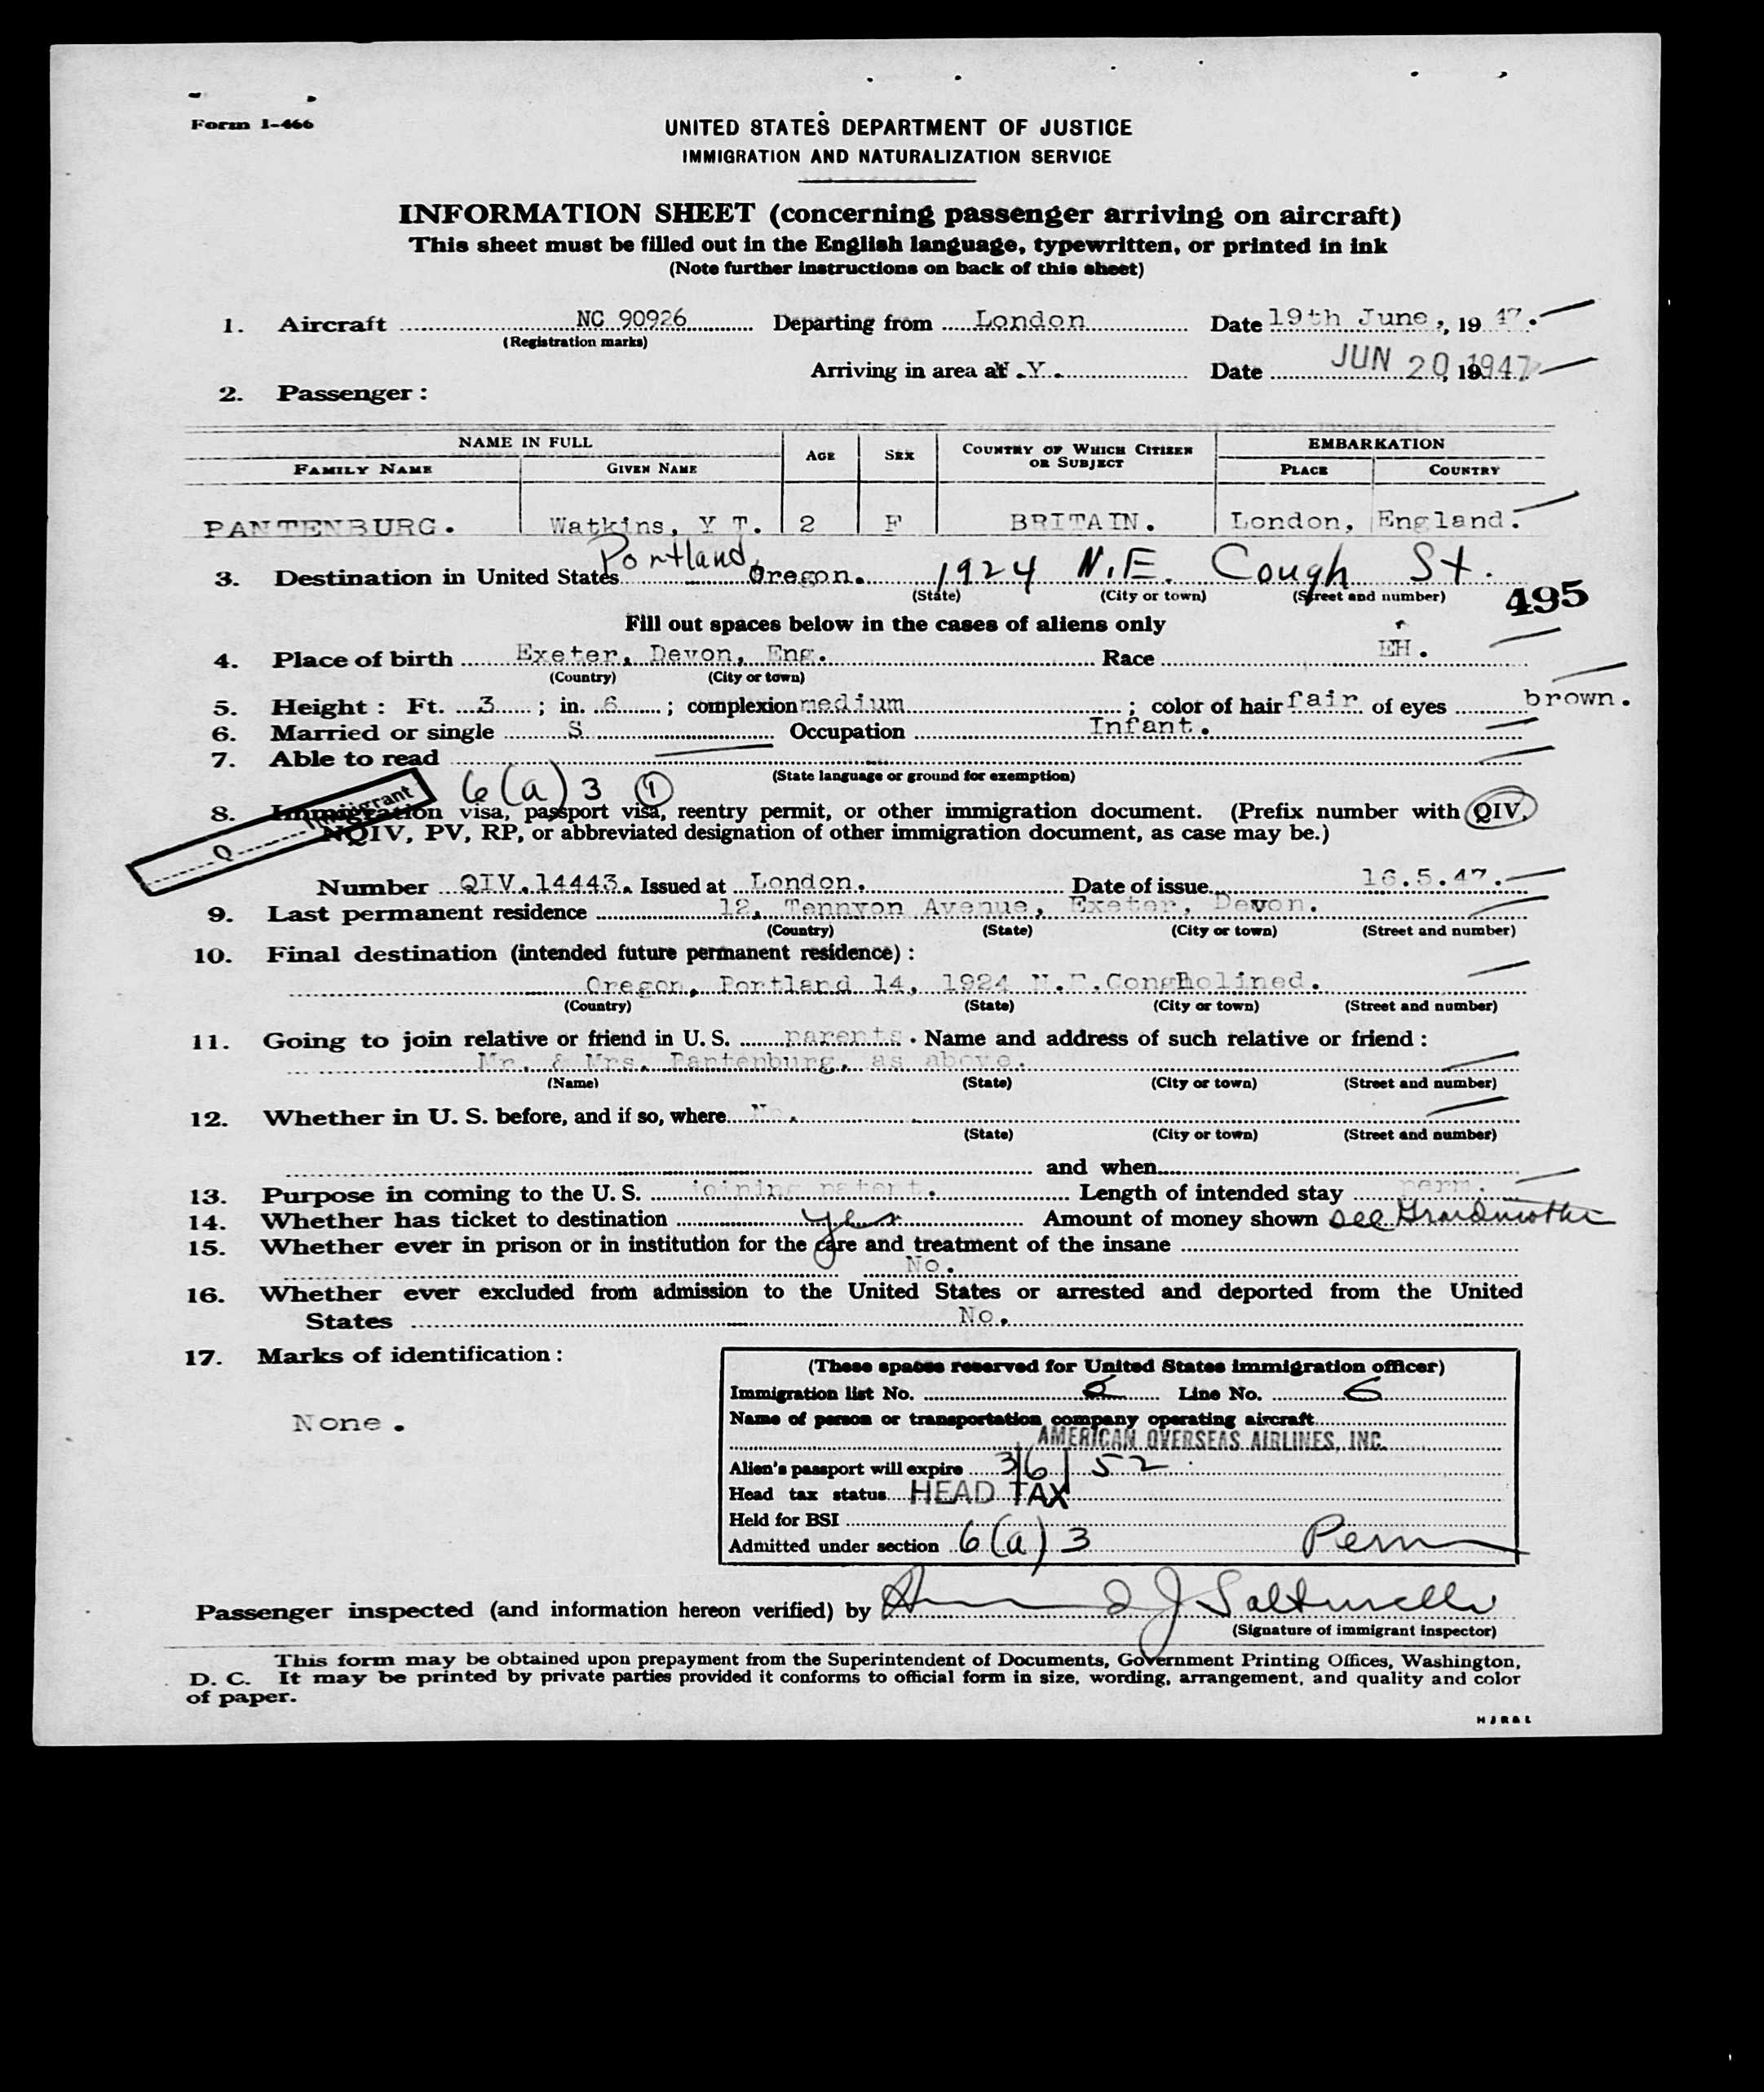 Form I-466
UNITED STATES DEPARTMENT OF JUSTICE
IMMIGRATION AND NATURALIZATION SERVICE
INFORMATION SHEET (concerning passenger arriving on aircraft)
This sheet must be filled out in the English language, typewritten, or printed in ink
(Note further instructions on back of this sheet)
1. Aircraft NC 90926 Departing from London Date 19th June, 19 47.
(Registration marks)
Arriving in area at N.Y. Date JUN 20, 1947
2. Passenger:
NAME IN FULL AGE SEX COUNTRY OF WHICH CITIZEN OR SUBJECT EMBARKATION
FAMILY NAME GIVEN NAME PLACE COUNTRY
PANTENBURG. Watkins, Y T. 2 F BRITAIN. London, England.
3. Destination in United States Portland, Oregon. 1924 N.E. Cough St.
(State) (City or town) (Street and number)
495
Fill out spaces below in the cases of aliens only
4. Place of birth Exeter, Devon, Eng. Race EH.
(Country) (City or town)
5. Height: Ft. 3; in. 6; complexion medium; color of hair fair of eyes brown.
6. Married or single S Occupation Infant.
7. Able to read
(State language or ground for exemption)
6(a)3 1
Q Immigrant
8. Immigration visa, passport visa, reentry permit, or other immigration document. (Prefix number with QIV,
NQIV, PV, RP, or abbreviated designation of other immigration document, as case may be.)
Number QIV.14443. Issued at London. Date of issue 16.5.47.
9. Last permanent residence 12, Tennyon Avenue, Exeter, Devon.
(Country) (State) (City or town) (Street and number)
10. Final destination (intended future permanent residence):
Oregon, Portland 14, 1924 N.E.
(Country) (State) (City or town) (Street and number)
11. Going to join relative or friend in U. S. parents. Name and address of such relative or friend:
Mr. & Mrs. Pantenburg, as above.
(Name) (State) (City or town) (Street and number)
12. Whether in U. S. before, and if so, where No.
(State) (City or town) (Street and number)
and when
13. Purpose in coming to the U. S. joining Length of intended stay perm.
14. Whether has ticket to destination yes Amount of money shown see Grandmother
15. Whether ever in prison or in institution for the care and treatment of the insane
No.
16. Whether ever excluded from admission to the United States or arrested and deported from the United
States No.
17. Marks of identification:
None.
(These spaces reserved for United States immigration officer)
Immigration list No. Line No. 6
Name of person or transportation company operating aircraft
AMERICAN OVERSEAS AIRLINES, INC.
Alien's passport will expire 3/6/52
Head tax status HEAD TAX
Held for BSI
Admitted under section 6(a)3 Perm
Passenger inspected (and information hereon verified) by
(Signature of immigrant inspector)
This form may be obtained upon prepayment from the Superintendent of Documents, Government Printing Offices, Washington,
D. C. It may be printed by private parties provided it conforms to official form in size, wording, arrangement, and quality and color
of paper.
H J R & L